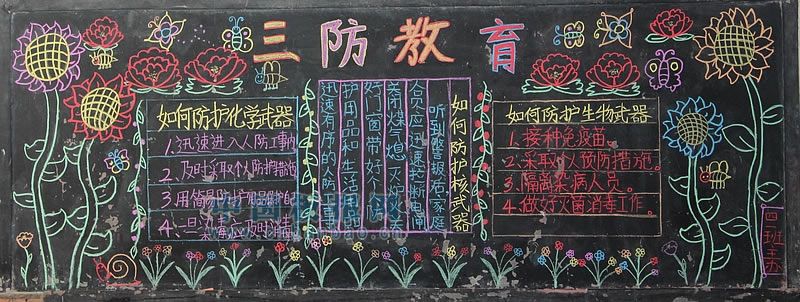 三防教育
如何防护化学武器
1.迅速进入人防工事内
2.及时采取个人防护措施
3.用简易防护用品防护
4.一旦染毒应及时消毒
如何防护核武器
听到警报后,家庭
合员应迅速拉断电闸
关闭煤气熄灭炉火
好门窗带好个人防
护用品和生活用品
迅速有序的人防工事
如何防护生物武器
1.接种免疫苗。
2.采取个人预防措施。
3.隔离染病人员。
4.做好灭菌消毒工作。
四班主